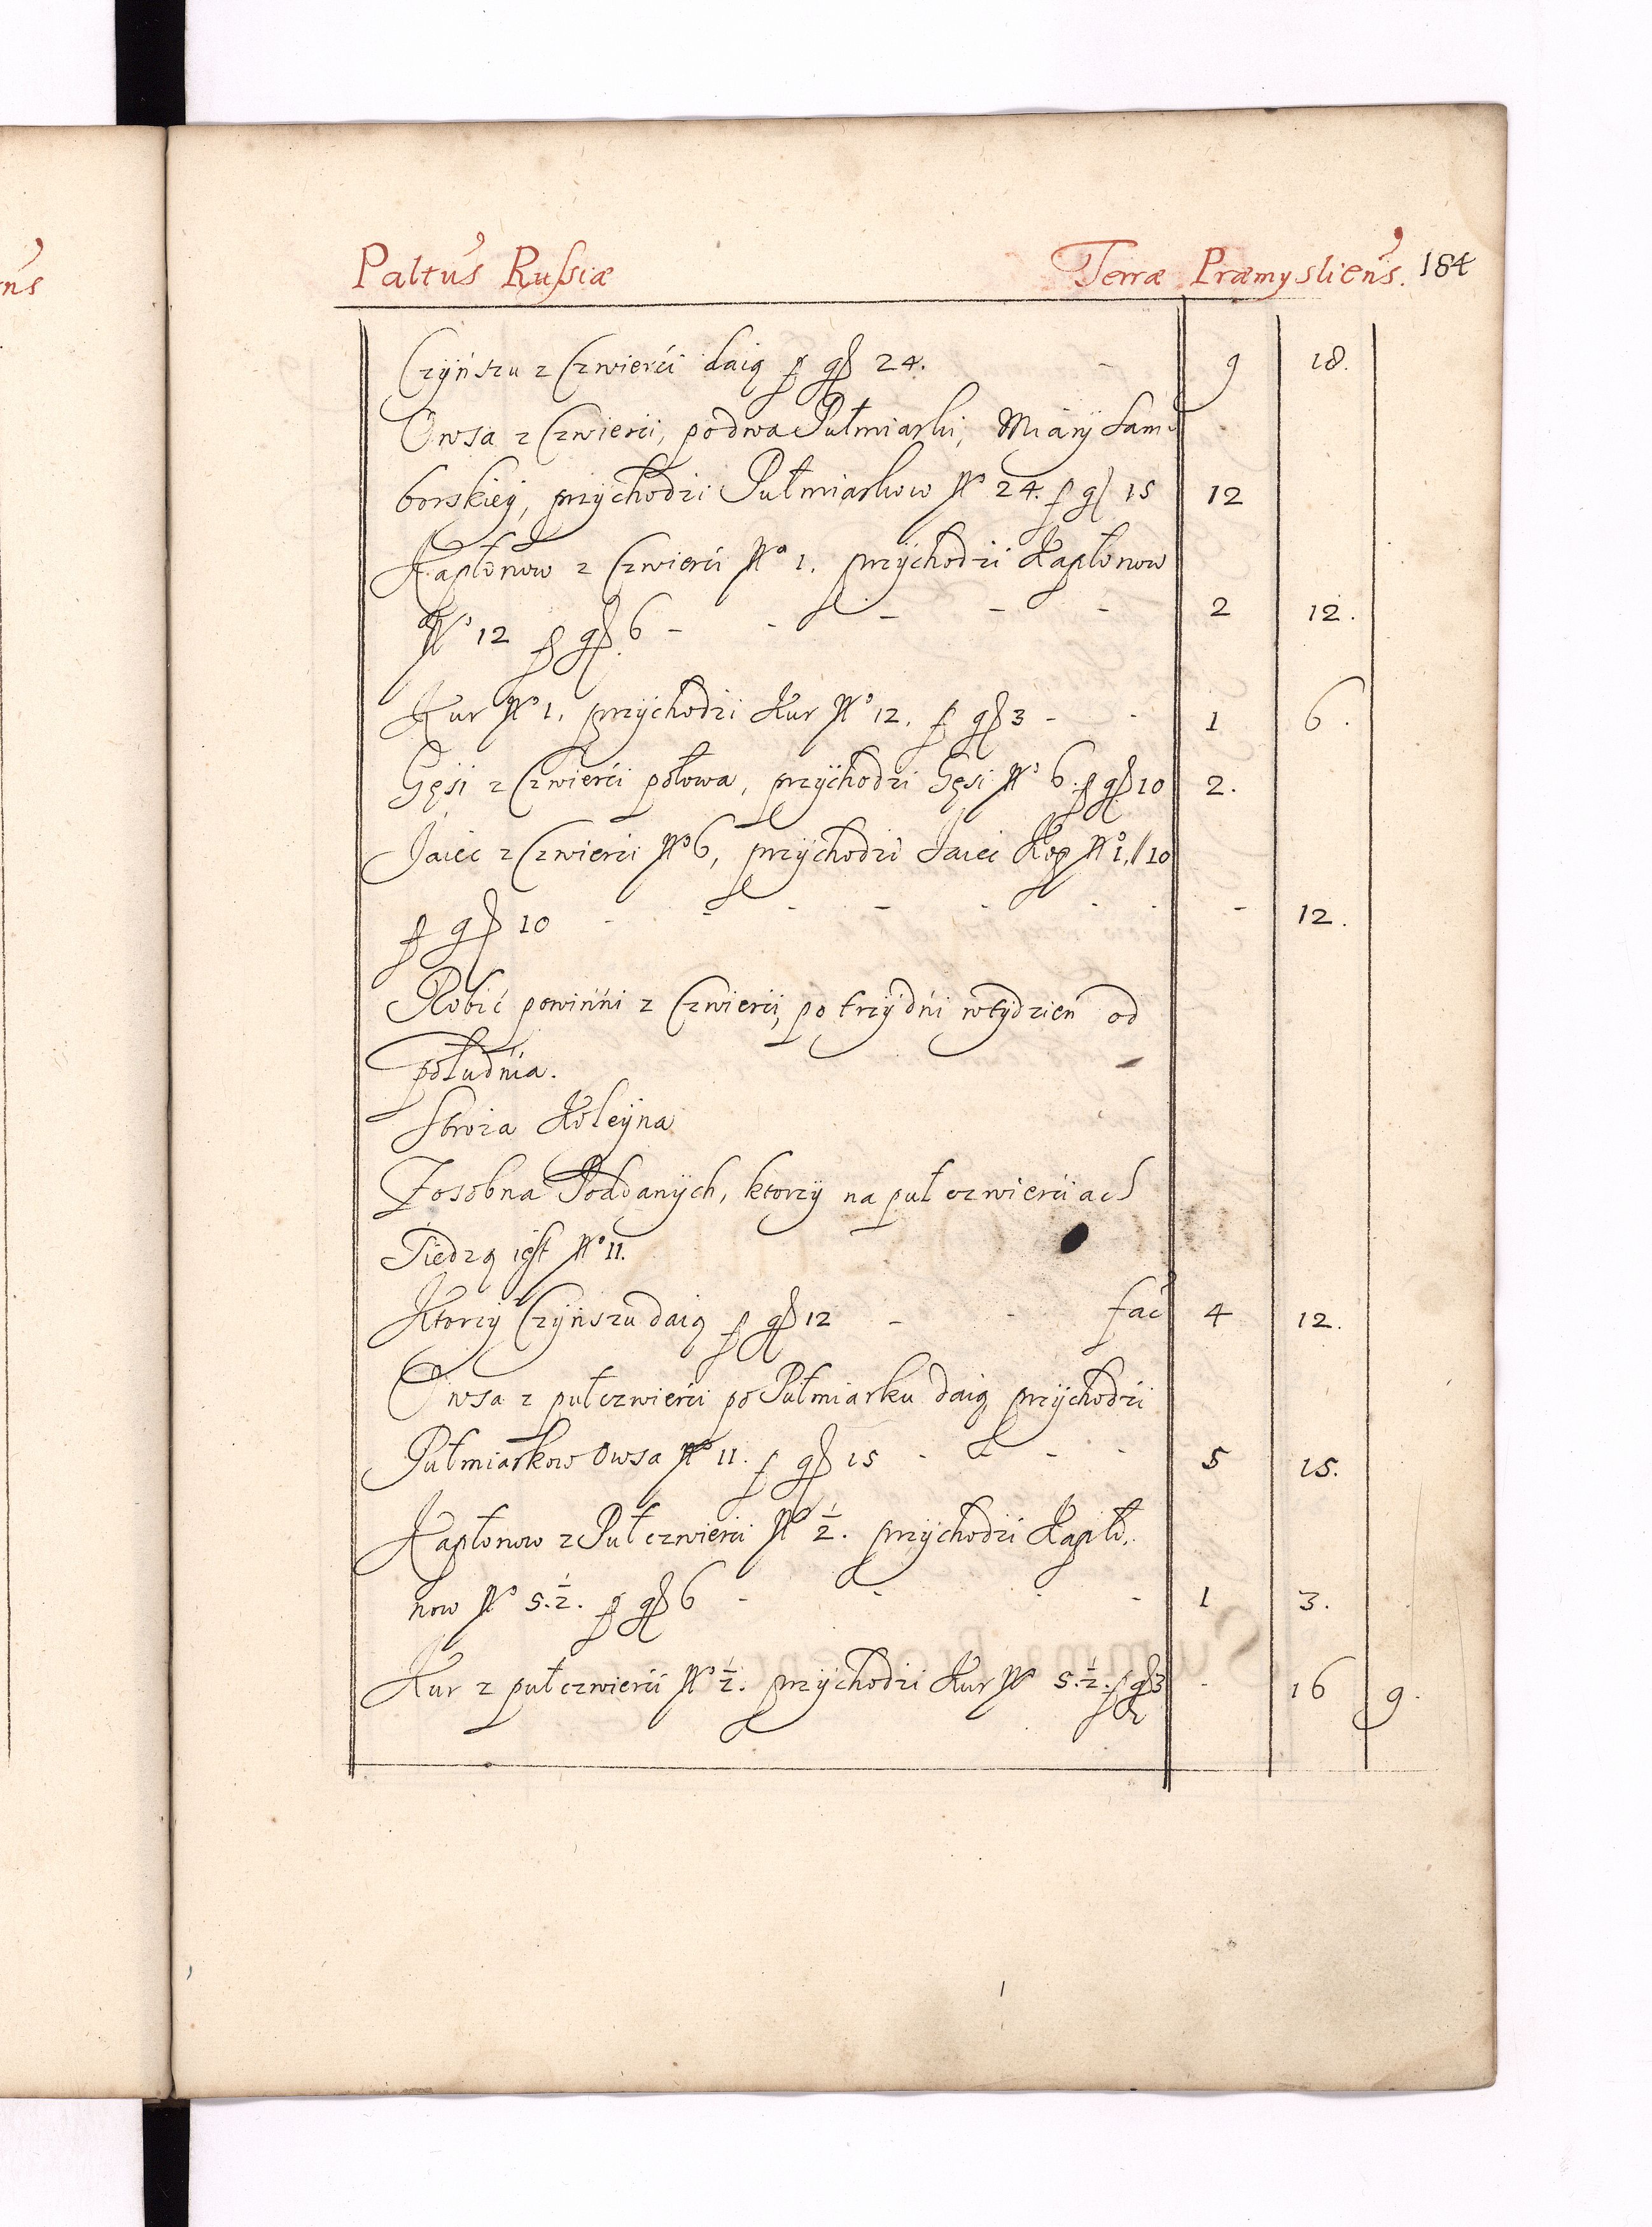 ens
Paltus Russiæ Terræ Præmysliens. 184
Czÿńszu z Czwierći daią p gſ 24. - 9 18.
Owsa z Czwierci, po dwa Pułmiarki, Miarÿ Sam-
borskieÿ, przÿchodzi Pułmiarkow No 24. p gſ 15 12
Kapłonow z Czwierći No 1. przÿchodzi Kapłonow
No 12 p gſ 6 - - - - - 2 12.
Kur No 1. przÿchodzi Kur No 12. p gſ 3 - - 1 6.
Gęsi z Czwierći połowa, przÿchodzi Gęsi No 6. p gſ 10 2.
Jaiec z Czwierci No 6, przÿchodzi Jaiec Kop No 1,// 10
p gſ 10 - - - - - - - - 12.
Robić powinni z Czwierci, po trzÿ dni w tÿdzień od
południa.
Stroża Koleÿna
Zosobna Poddanÿch, ktorzÿ na puł czwierciach
Siedzą iest No 11.
Ktorzÿ Czÿnszu daią p gſ 12 - - fac 4 12.
Owsa z puł czwierći po Pułmiarku daią przÿchodzi
Pułmiarkow Owsa No 11. p gſ 15 - - - - 5 15.
Kapłonow z Puł czwierci No ½. przÿchodzi Kapło-
now No 5.½. p gſ 6 - - - - 1 3.
Kur z puł czwierci No ½. przÿchodzi Kur No 5.½. p gſ 3 - 16 9.